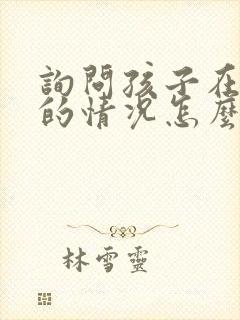 詢問孩子在
的情況怎麼
林雪靈